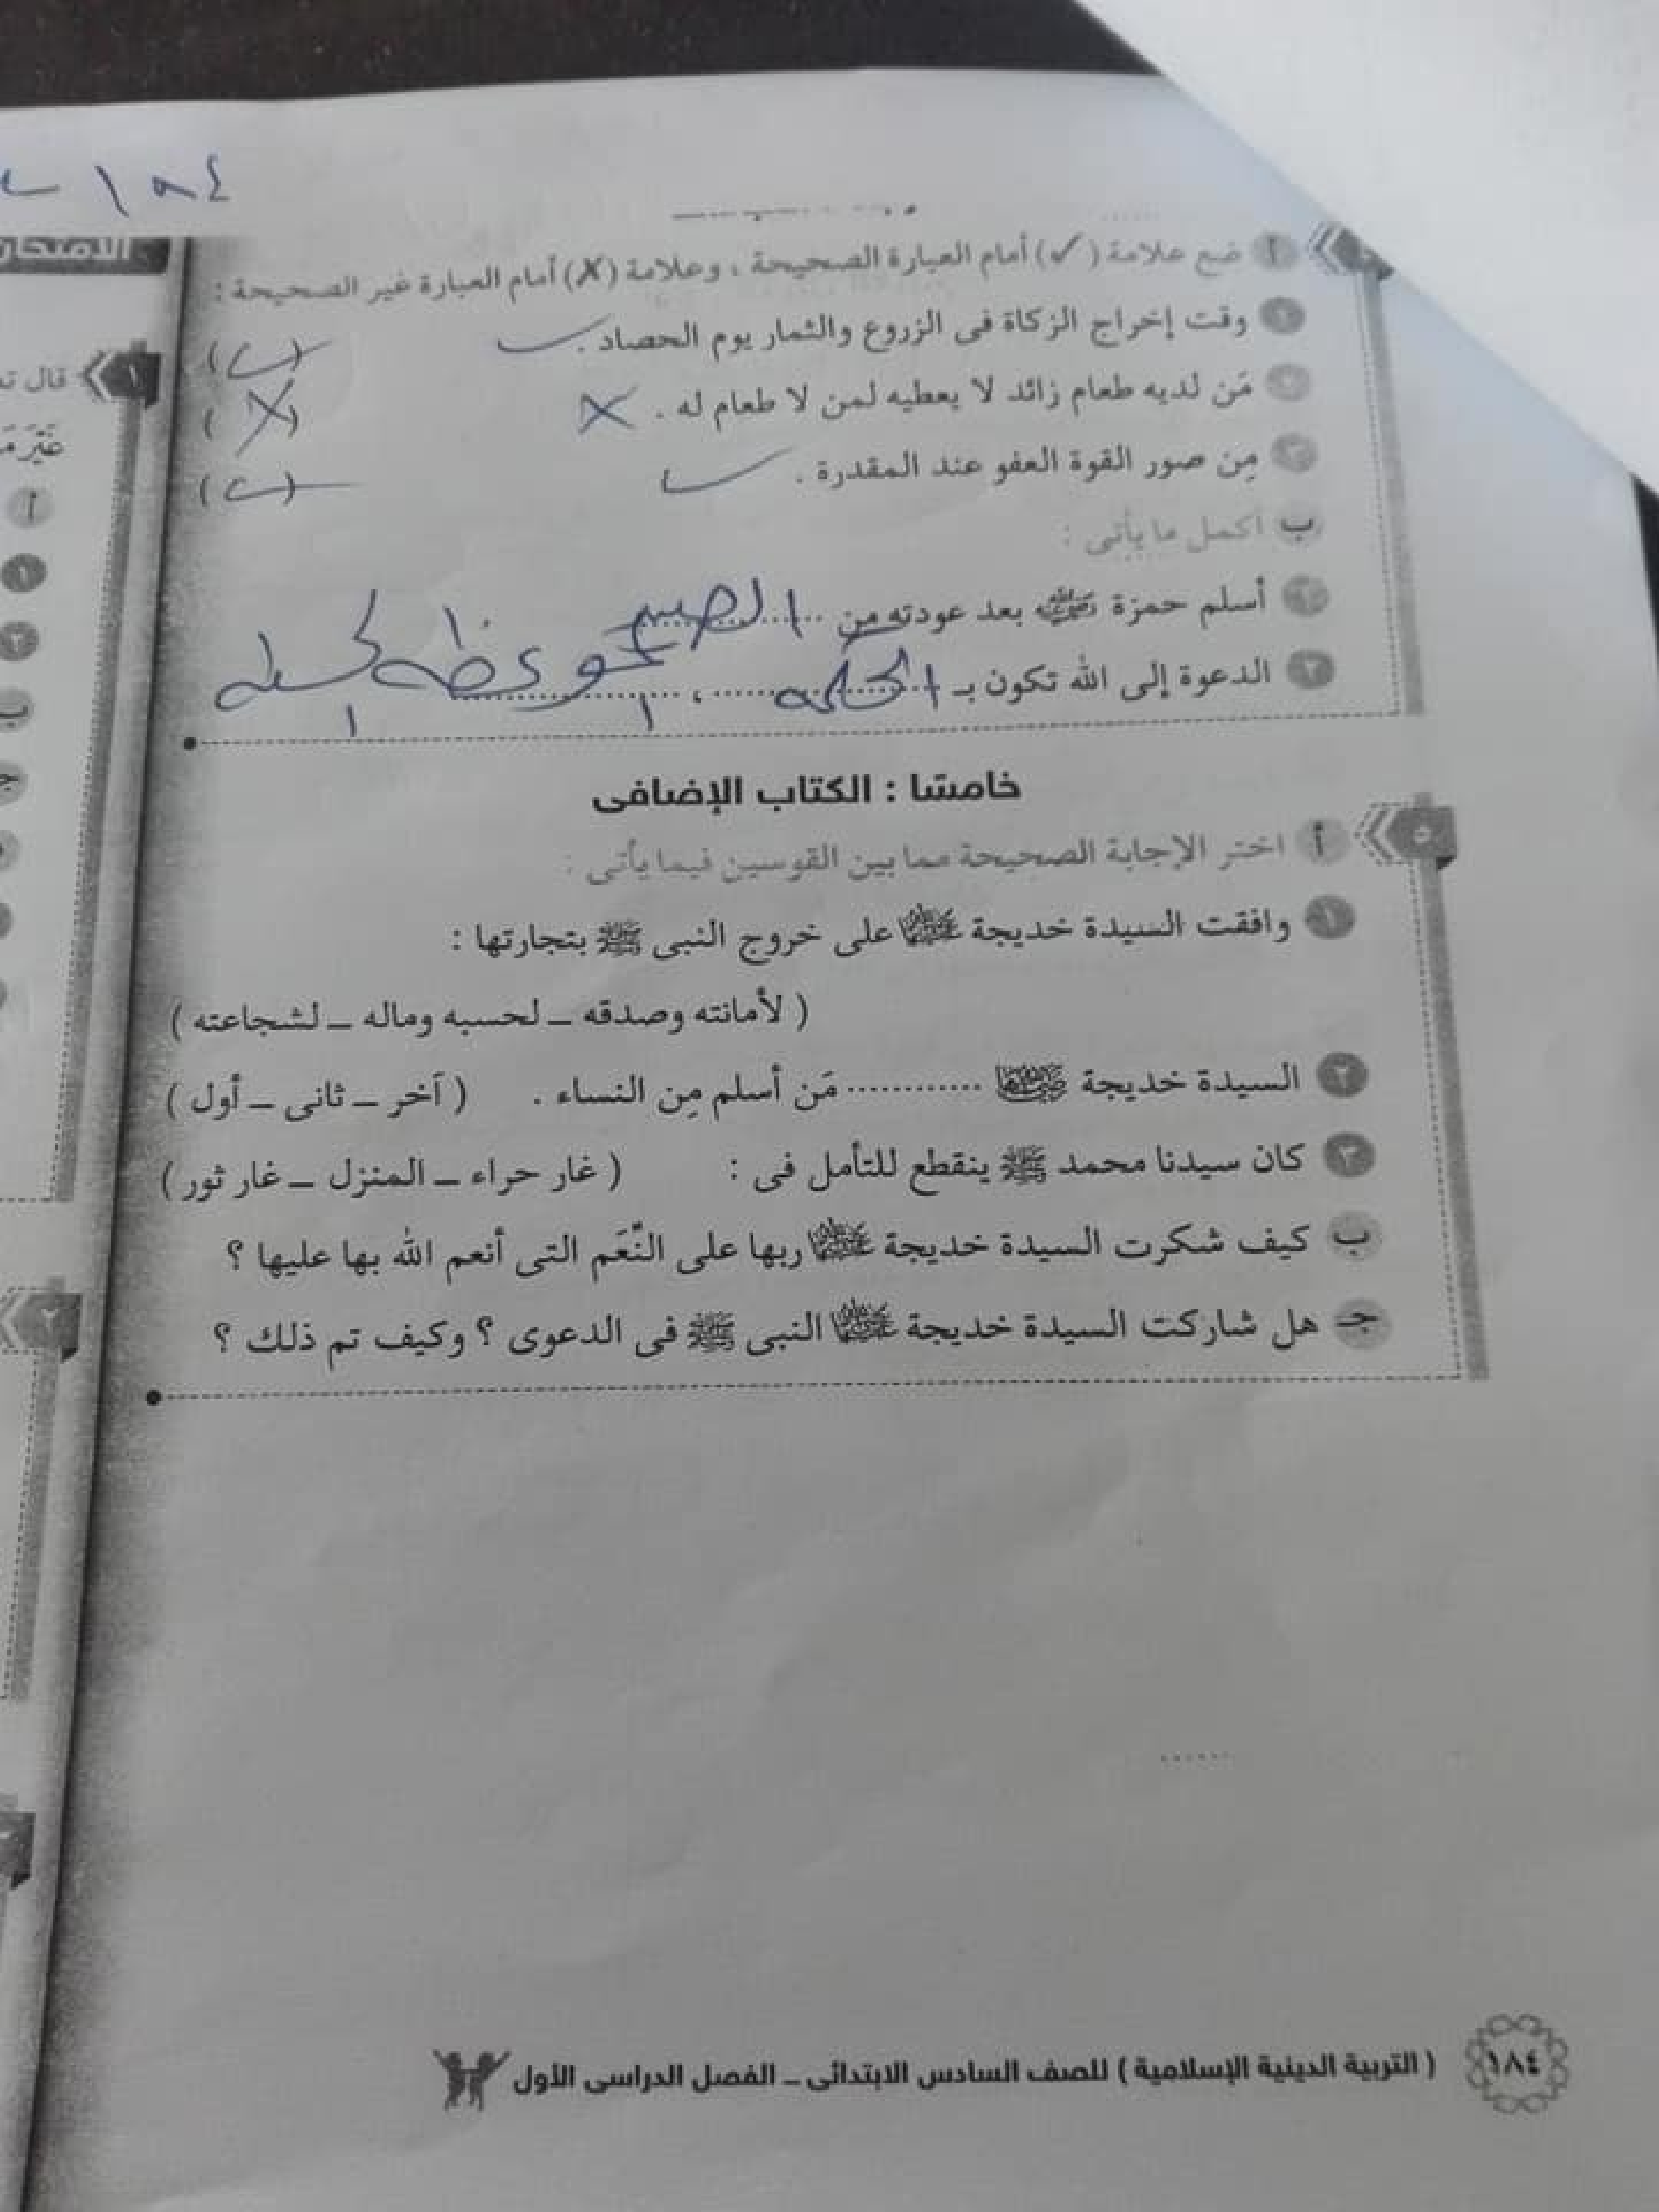 ١٨٤
أ ضع علامة (✓) أمام العبارة الصحيحة ، وعلامة (✗) أمام العبارة غير الصحيحة :
١ وقت إخراج الزكاة فى الزروع والثمار يوم الحصاد . ✓ (✓)
٢ مَن لديه طعام زائد لا يعطيه لمن لا طعام له . ✗ (✗)
٣ مِن صور القوة العفو عند المقدرة . ✓ (✓)
ب أكمل ما يأتى :
١ أسلم حمزة رضي الله عنه بعد عودته من الصيد
٢ الدعوة إلى الله تكون بـ الحكمه ، الموعظه الحسنه
خامسًا : الكتاب الإضافى
٥ أ اختر الإجابة الصحيحة مما بين القوسين فيما يأتى :
١ وافقت السيدة خديجة رضي الله عنها على خروج النبى ﷺ بتجارتها :
( لأمانته وصدقه ــ لحسبه وماله ــ لشجاعته )
٢ السيدة خديجة رضي الله عنها ............ مَن أسلم مِن النساء . ( آخر ــ ثانى ــ أول )
٣ كان سيدنا محمد ﷺ ينقطع للتأمل فى : ( غار حراء ــ المنزل ــ غار ثور )
ب كيف شكرت السيدة خديجة رضي الله عنها ربها على النِّعَم التى أنعم الله بها عليها ؟
جـ هل شاركت السيدة خديجة رضي الله عنها النبى ﷺ فى الدعوى ؟ وكيف تم ذلك ؟
١٨٤ ( التربية الدينية الإسلامية ) للصف السادس الابتدائى ــ الفصل الدراسى الأول
١ قال
أ
١
٢
ب
٢